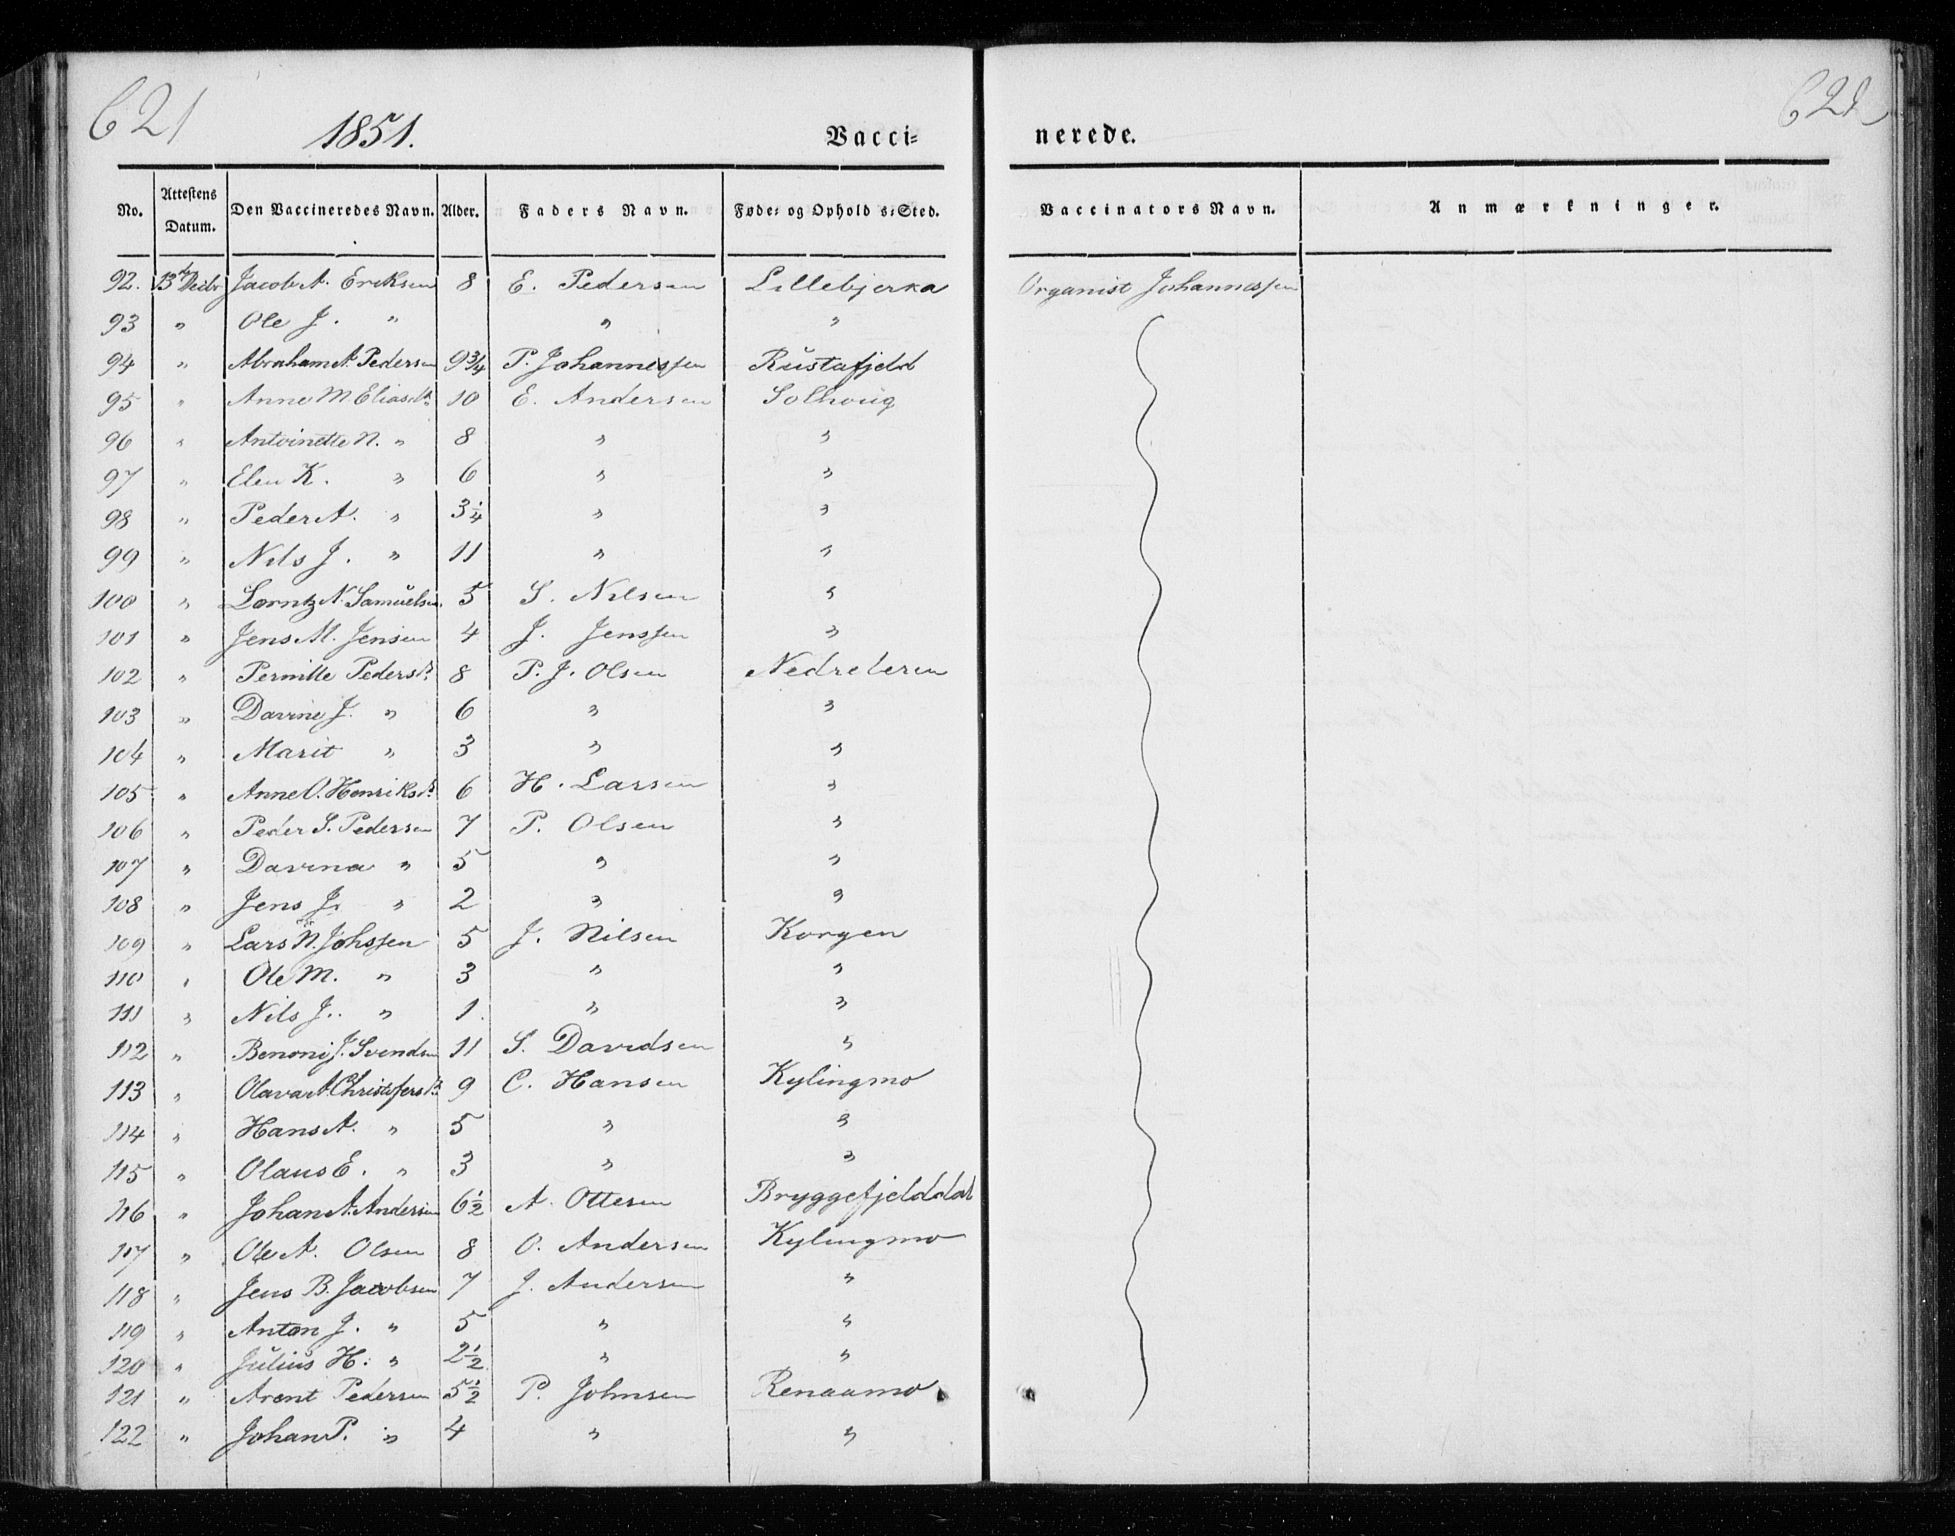 621
1851.
Vacci=
No. Attestens Datum. Den Vaccineredes Navn. Alder. Faders Navn. Føde- og Opholds-Sted.
92. 13de Decbr Jacob A. Eriksen 8 E. Pedersen Lillebjerka
93 " Ole J. " " "
94 " Abraham A. Pedersen 9 3/4 P. Johannessen Rustafjeld
95 " Anne M. Eliasdr. 10 E. Andersen Solhoug
96 " Antoinette N. " 8 " "
97 " Elen K. " 6 " "
98 " Peder A. " 3 1/4 " "
99 " Nils J. " 11 " "
100 " Lorntz N. Samuelsen. 5 S. Nilsen "
101 " Jens M. Jensen 4 J. Jenssen "
102 " Pernille Pedersdr. 8 P. J. Olsen Nedreleren
103 " Davine J. " 6 " "
104 " Marit " 3 " "
105 " Anne O. Henriksdr. 6 H. Larsen "
106 " Peder S. Pedersen 7 P. Olsen "
107 " Davina " 5 " "
108 " Jens J. " 2 " "
109 " Lars N. Johssen 5 J. Nilsen Korgen
110 " Ole M. " 3 " "
111 " Nils J. " 1. " "
112 " Benoni J. Svendsen 11 S. Davidsen "
113 " Olava A. Christofersdr. 9 C. Hansen Kylingmo
114 " Hans A. " 5 " "
115 " Olaus E. " 3 " "
116 " Johan A. Andersen 6 1/2 A. Ottesen Bryggefjelddal
117 " Ole A. Olsen 8 O. Andersen Kylingmo
118 " Jens B. Jacobsen 7 J. Andersen "
119 " Anton J. " 5 " "
120 " Julius H. " 2 1/2 " "
121 " Arent Pedersen 5 1/2 P. Johnsen Renaamo
122 " Johan P. " 4 " "
nerede.
Vaccinators Navn. Anmærkninger.
Organist Johannessen